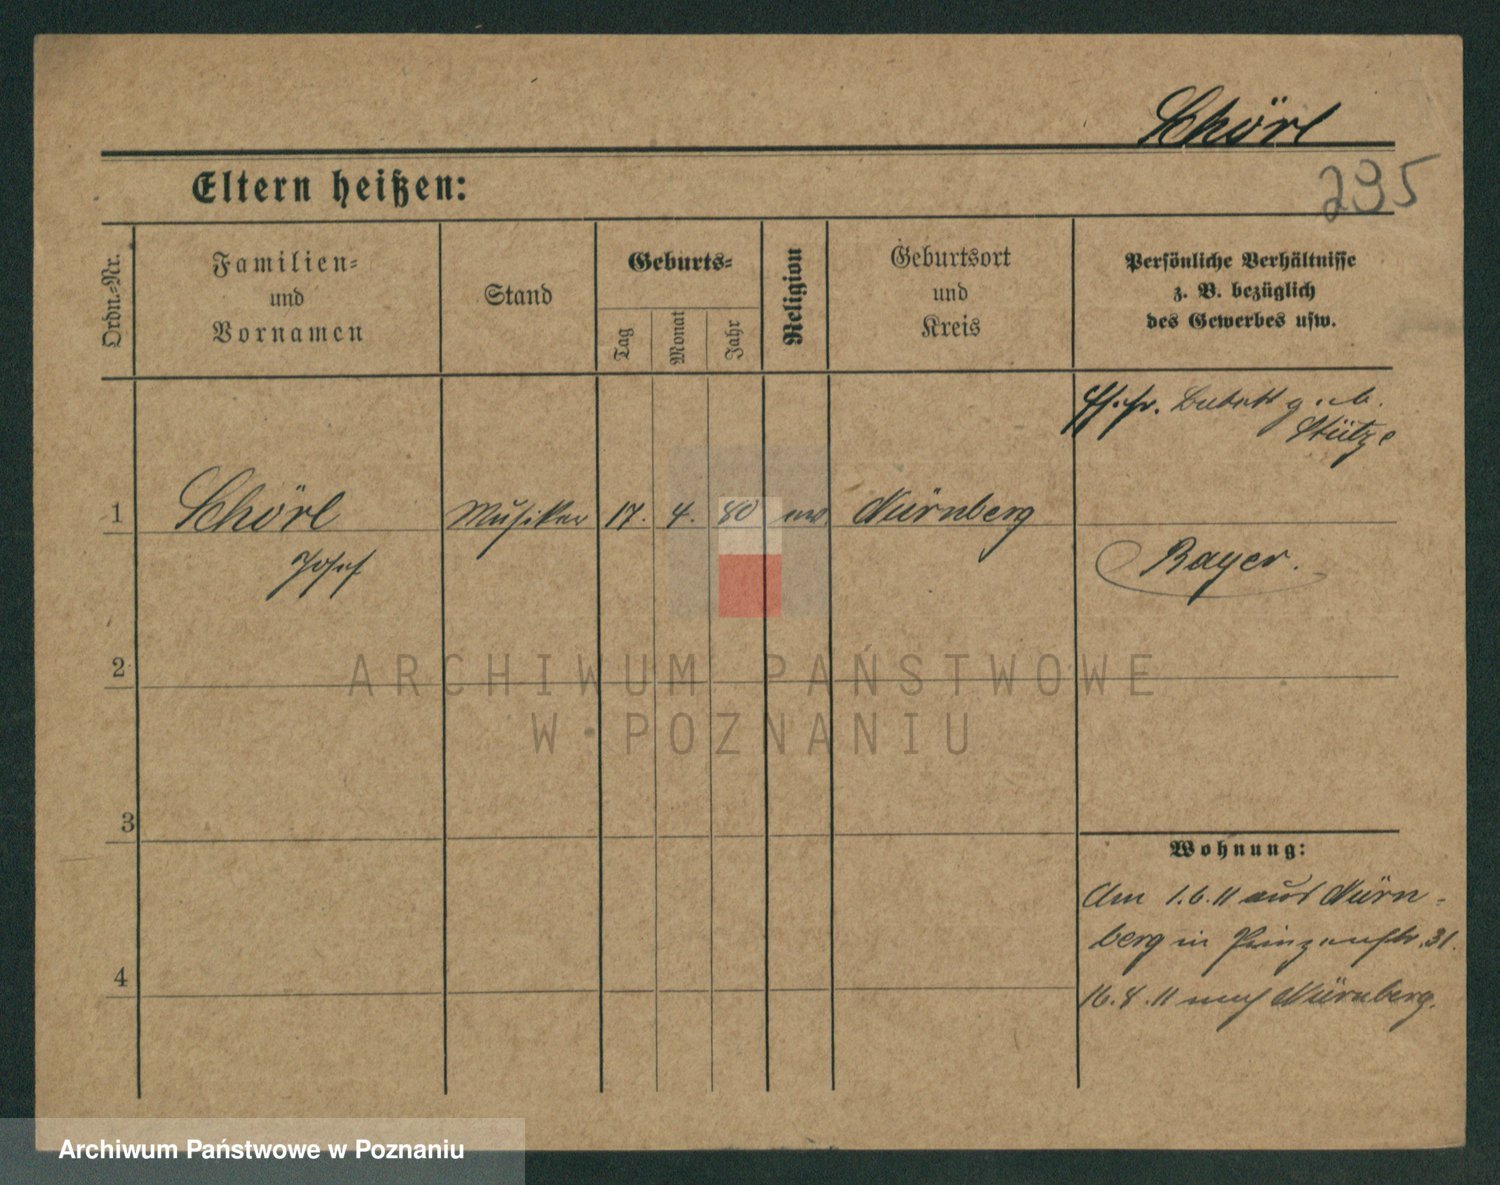 Schörl
295
Eltern heißen:
Ordn.-Nr.
Familien-
und
Vornamen
Stand
Geburts-
Tag
Monat
Jahr
Religion
Geburtsort
und
Kreis
Persönliche Verhältnisse
z. B. bezüglich
des Gewerbes usw.
g. u. b.
Stütze
1 Schörl Musiker 17. 4. 80 Nürnberg
Josef
Bayer.
2
ARCHIWUM PAŃSTWOWE
W POZNANIU
3
Wohnung:
Am 1.6.11 aus Nürn-
berg in Prinzenstr. 31.
4
16.8.11 nach Nürnberg.
Archiwum Państwowe w Poznaniu